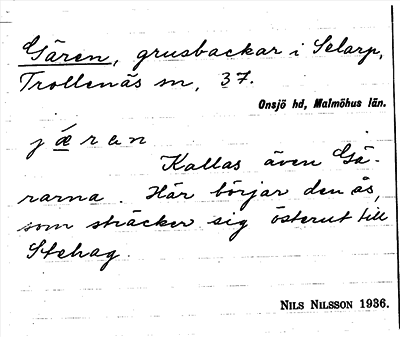 Gären, grusbackar i Selarp,
Trollenäs sn, 37.
Onsjö hd, Malmöhus län.
jǽran
Kallas även Gä-
rarna. Här börjar den ås,
som sträcker sig österut till
Stehag.
NILS NILSSON 1936.